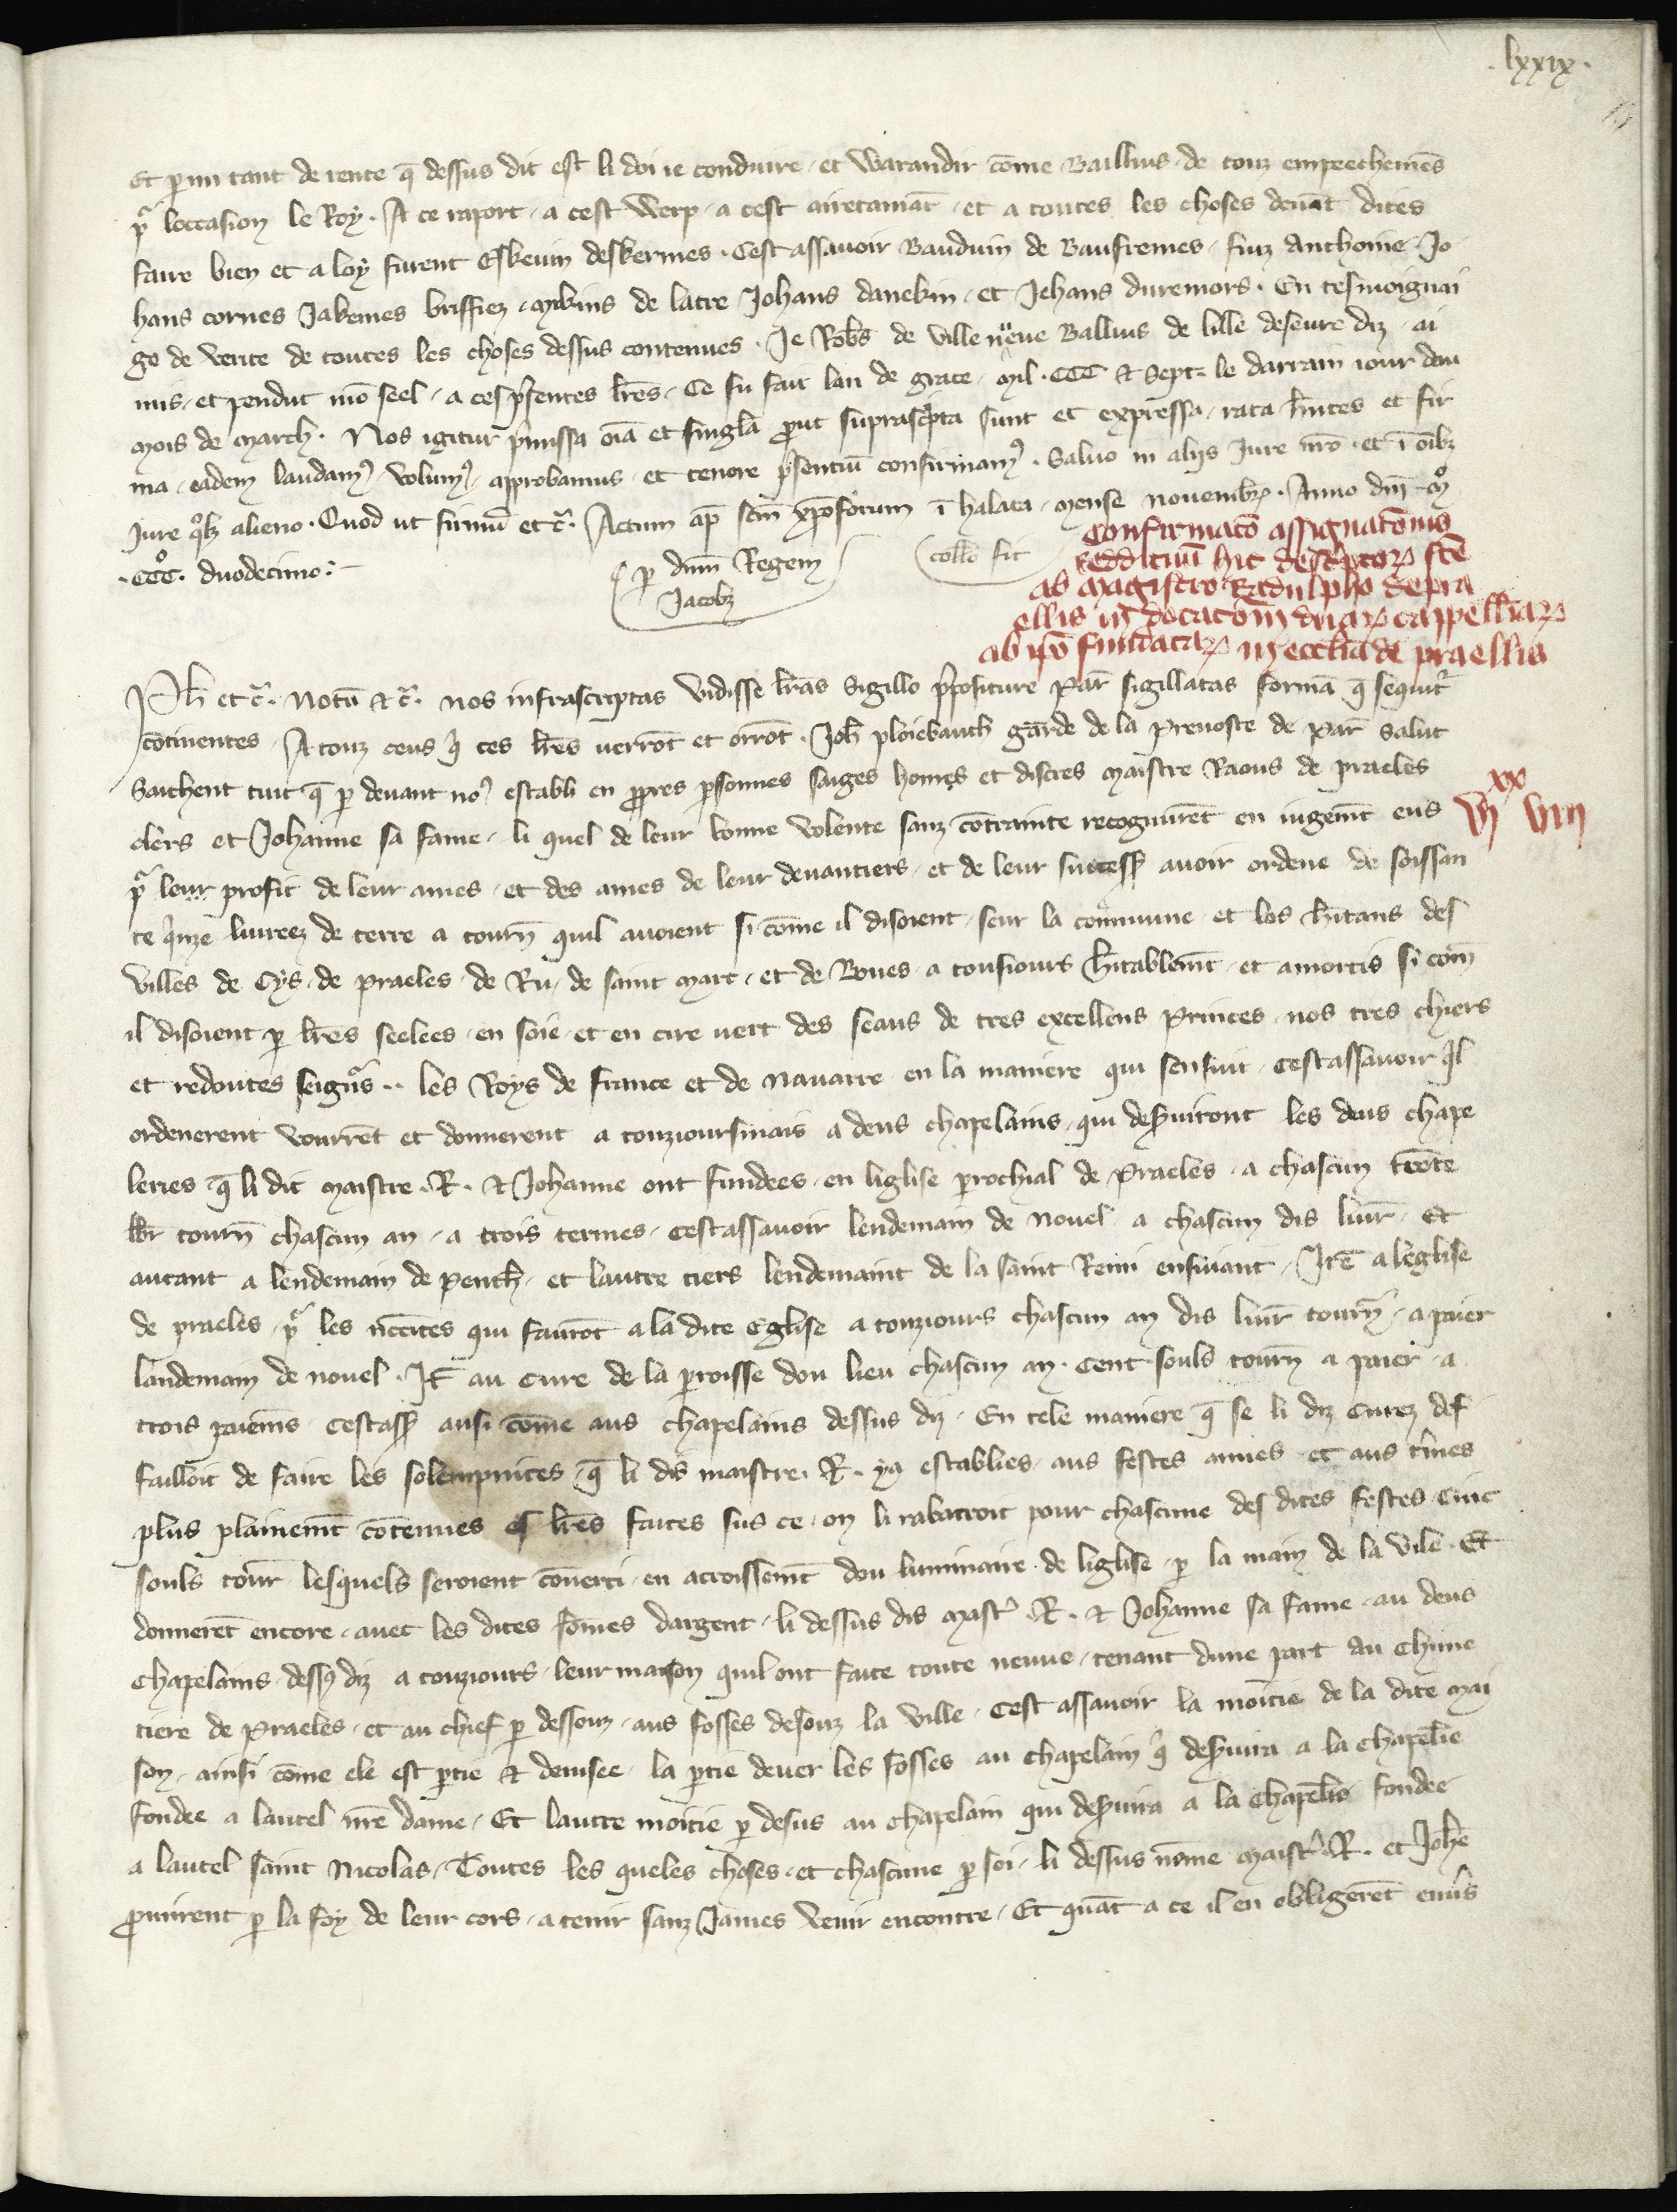 .lxxix.
Et parmi tant de rente q̄ dessus dit est li doi ie conduire . et Warandir cōme Baillius . de touz empeechemēs
pͬ loccasion le Roy . A ce raport . a cest Werp . a cest airetamāt . et a toutes les choses deuāt dites
faire bien et a loy furent Eskeuin deskermes . Cest assauoir Bauduin de Baufremes . fiuz Anthonie . Jo
hans cornes Jakemes briffiez . Mikins de latre Johans danekin . et Jehans duremors . En tesmoignai
ge de verite de toutes les choses dessus contenues . Je Rob̄s de Ville neuue Ballius de lille deseure diz . ai
mis . et pendut mō seel . a ces p̄sentes lr̄es . Ce fu fait lan de grace . Mil . CCC et Sept . le darrain iour dou
mois de March . Nos igitur p̄missa om̄a et singl̄a put suprasc̄pta sunt et expressa . rata hn̄tes et fir
ma . eadem laudamꝰ . volumꝰ . approbamus . et tenore p̄sentiū confirmamꝰ . Saluo in aliis Jure nr̄o . et ī om̄ibꝫ
Jure qͦlꝫ alieno . Quod ut firmū etc̄ . Actum ap̄ scm̄ xp̄oforum ī halata . mense nouembꝝ . Anno dn̄i Mͦ
.CCCͦ. duodecimo :-
p dn̄m Regem
Jacobꝫ
coll̄o fit
Confirmatō assignatōnis
reddituū hic descͥptoꝝ fc̄e
ab Magistro Radulpho de pra
ellis in dotatōm duaꝝ cappellīaꝝ
ab ip̄o fundataꝝ in eccl̄ia de praellis
Ph̄ etc̄ . Notū etc̄ . nos infrascriptas vidisse lr̄as Sigillo p̄positure Par̄ sigillatas formā q̄ sequitͬ
cōtinentes . A touz ceus qͥ ces lr̄es uerrōt et orrōt . Joh̄ ploiebauch garde de la Preuoste de Par̄ salut
Saichent tuit q̄ p deuant noꝰ establi en ppres psonnes saiges homes et discres maistre Raous de praeles
clers et Johanne sa fame . li quel de leur bonne volente sanz cōtrainte recognurēt en iugemt̄ eus
vjͯͯ viij
pͬ leur profit de leur ames . et des ames de leur deuantiers . et de leur success̄ auoir ordene de soissan
te qͥnze liureez de terre a tourn̄ quil auoient si cōme il disoient . seur la commune et les hītans des
villes de Cys . de Praeles . de Ru . de saint Mart . et de Boues . a tousiours hītablemt̄ . et amortis si com̄
il disoient p lr̄es seelees . en soie . et en cire uert des seaus de tres excellens Princes . nos tres chiers
et redoutes seignͦs .. les Roys de france et de Nauarre en la maniere qui sensuit . Cestassauoir qͥl
ordenerent vourrēt et donnerent a touzioursmais a deus chapelains . qui desuiront les deus chape
leries q̄ li dit maistre .R. et Johanne ont fundees . en liglise prochial de Praeles . a chascun trēte
lb̄r tourn̄ chascun an . a trois termes . cestassauoir lendemain de Nouel a chascun dis liur̄ . Et
autant a lendemain de Penth̄ . et lautre tiers lendemaint de la saint Remi ensiuant . Itē a leglise
de praeles . pͬ les nccites qui faurōt a la dite Eglise a touziours chascun an dis liur̄ tourn̄ . a paier
landemain de nouel . It̄ au Cure de la proisse dou lieu chascun an . Cent souls tourn̄ a paier . a
trois paiem̄s . Cestass̄ ausi cōme aus chapelains dessus diz . En tele maniere q̄ se li diz Curez def
failloit de faire les solempnites . q̄ li dis maistre .R. ya establies . aus festes anues . et aus tm̄es
plus plainemt̄ cōtenues es lr̄es faites sus ce . on li rabatroit pour chascune des dites festes Cinc
souls tour̄ . lesquels seroient cōuerti . en acroissemt̄ dou luminaire . de liglise . p la main de la vile . Et
donnerēt encore . auec les dites sōmes dargent . li dessus dis mastͬ .R. et Johanne sa fame . au deus
Chapelains . dessꝰ diz a touziours . leur maison quil ont faite toute neuue . tenant dune part au Chime
tiere de Praeles . et au chief p dessouz . aus fosses desouz la ville . Cest assauoir la moitie de la dite mai
son . ainsi cōme ele est ptie et deuisee . la ptie deuer les fosses au chapelain qͥ desuira a la chapel̄ie
fondee a lautel nr̄e dame . Et lautre moitie p desus au chapelain qui desuira a la Chapel̄ie fondee
a lautel saint Nicolas . Toutes les queles choses . et chascune p soi . li dessus nōme Maistͬ .R. et Joh̄e
pmirent p la foy de leur cors . a tenir sanz James venir encontre . Et quāt a ce il en obligerēt enūs